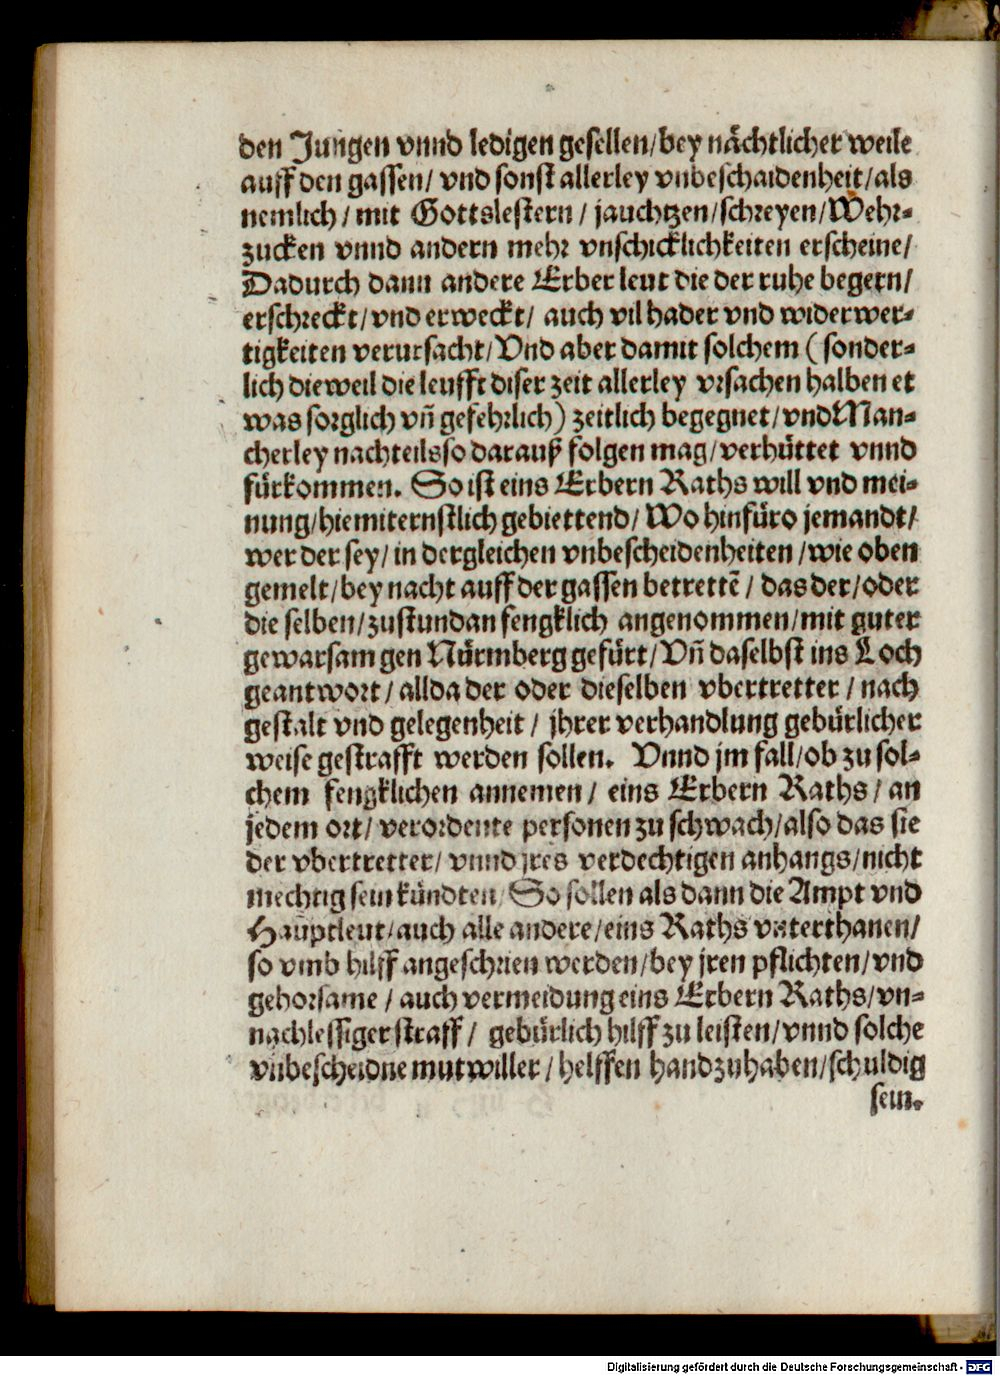 den Jungen vnnd ledigen gesellen/bey nächtlicher weile
auff den gassen/ vnd sonst allerley vnbeschaidenheit/als
nemlich/ mit Gottslestern / jauchtzen/schreyen/Wehr-
zucken vnnd andern mehr vnschicklichkeiten erscheine/
Dadurch dann andere Erber leut die der ruhe begern/
erschreckt/vnd erweckt/ auch vil hader vnd widerwer-
tigkeiten verursacht/Vnd aber damit solchem (sonder-
lich dieweil die leufft diser zeit allerley vrsachen halben et
was sorglich vñ gefehrlich) zeitlich begegnet/vnd Man-
cherley nachteils so darauß folgen mag/verhüttet vnnd
fürkommen. So ist eins Erbern Raths will vnd mei-
nung/hiemit ernstlich gebiettend/ Wo hinfüro jemandt/
wer der sey/ in dergleichen vnbescheidenheiten /wie oben
gemelt/bey nacht auff der gassen betrettẽ / das der/oder
die selben/zustundan fengklich angenommen/mit guter
gewarsam gen Nürmberg gefürt/Vñ daselbst ins Loch
geantwort/allda der oder dieselben vbertretter / nach
gestalt vnd gelegenheit / jhrer verhandlung gebürlicher
weise gestrafft werden sollen. Vnnd jm fall/ob zu sol-
chem fengklichen annemen/ eins Erbern Raths/ an
jedem ort/ verordente personen zu schwach/also das sie
der vbertretter/ vnnd jres verdechtigen anhangs/nicht
mechtig sein kündten/ So sollen als dann die Ampt vnd
Hauptleut/auch alle andere/eins Raths vnterthanen/
so vmb hilff angeschrien werden/bey jren pflichten/vnd
gehorsame / auch vermeidung eins Erbern Raths/vn-
nachlessiger straff / gebürlich hilff zu leisten/vnnd solche
vnbescheidne mutwiller / helffen handzuhaben/schuldig
sein.
Digitalisierung gefördert durch die Deutsche Forschungsgemeinschaft - DFG